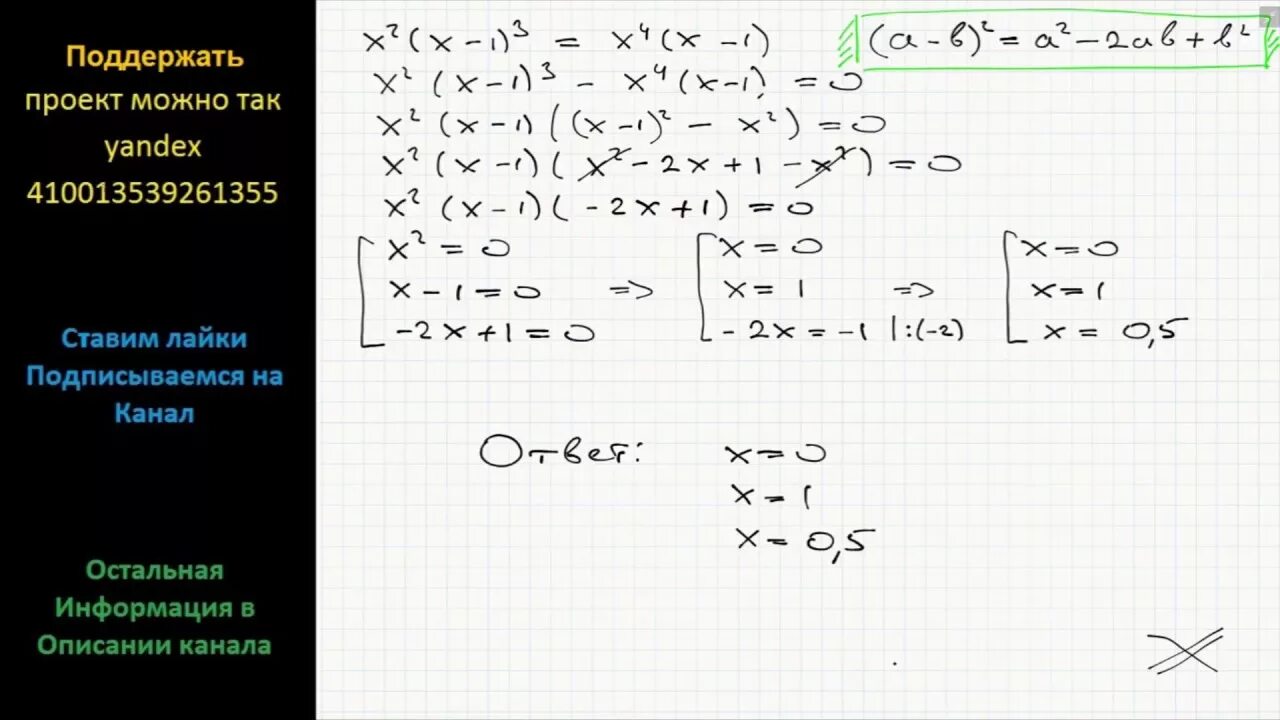 Поддержать
проект можно так
yandex
410013539261355
Ставим лайки
Подписываемся на
Канал
Остальная
Информация в
Описании канала
x²(x-1)³ = x⁴(x-1)
(a-b)² = a² - 2ab + b²
x²(x-1)³ - x⁴(x-1) = 0
x²(x-1)((x-1)² - x²) = 0
x²(x-1)(x² - 2x + 1 - x²) = 0
x²(x-1)(-2x+1) = 0
x² = 0
x - 1 = 0 =>
-2x + 1 = 0
x = 0
x = 1 =>
-2x = -1 |:(-2)
x = 0
x = 1
x = 0,5
Ответ: x = 0
x = 1
x = 0,5